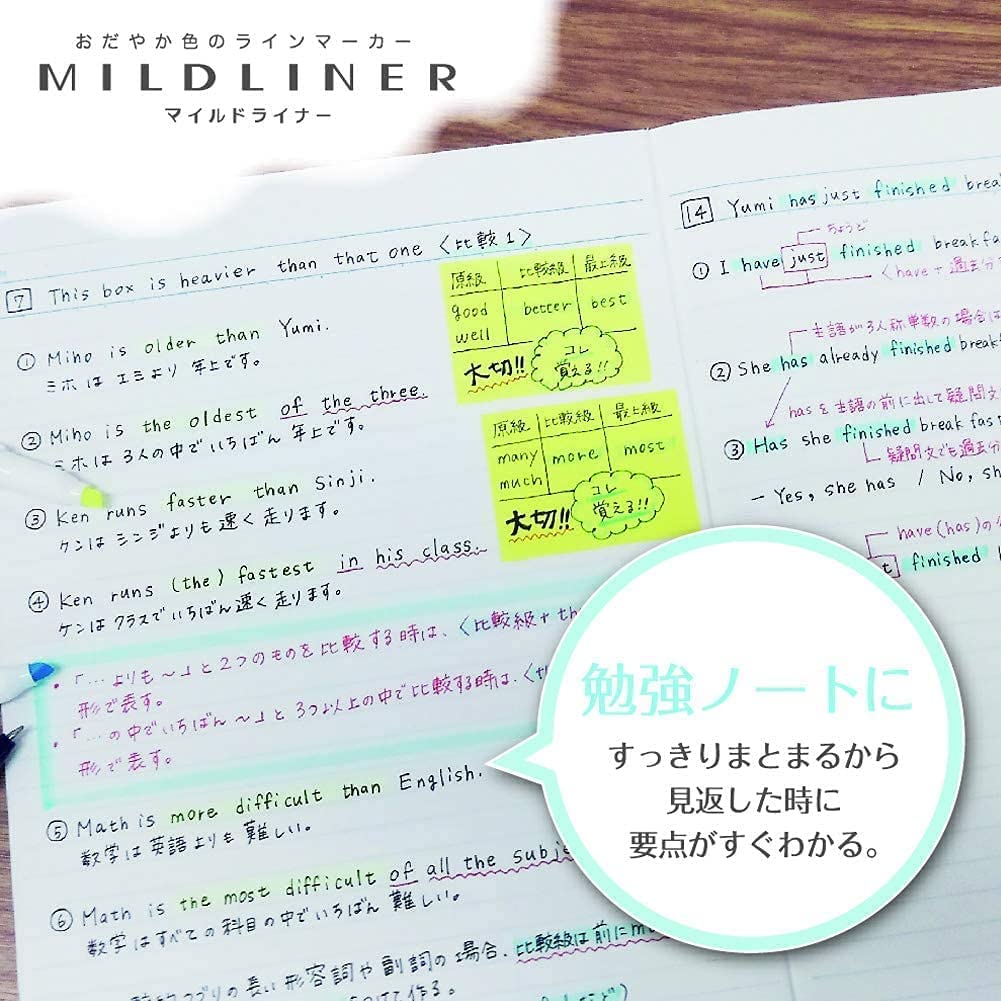 おだやか色のラインマーカー
MILDLINER
マイルドライナー
7 This box is heavier than that one 〈比較1〉
① Miho is older than Yumi.
ミホは エミより 年上です。
② Miho is the oldest of the three.
ミホは 3人の中でいちばん 年上です。
③ Ken runs faster than Sinji.
ケンは シンジよりも 速く 走ります。
④ Ken runs (the) fastest in his class.
ケンは クラスでいちばん速く 走ります。
・「…よりも〜」と2つのものを比較する時は、〈比較級+th
形で表す。
・「…の中でいちばん〜」と3つ以上の中で比較する時は、〈th
形で表す。
⑤ Math is more difficult than English.
数学は英語よりも 難しい。
⑥ Math is the most difficult of all the subje
数学はすべての科目の中でいちばん 難しい。
の長い形容詞や副詞の場合、比較級は前にm
つけて作る。
原級 比較級 最上級
good better best
well
大切!! コレ
覚える!!
原級 比較級 最上級
many more most
much
大切!! コレ
覚える!!
14 Yumi has just finished brea
ちょうど
① I have just finished breakfa
〈have+過去分
主語が3人称単数の場合は
② She has already finished break
hasを主語の前に出して疑問文
③ Has she finished breakfast
疑問文でも過去分
- Yes, she has / No, sh
have(has)の
t finished
勉強ノートに
すっきりまとまるから
見返した時に
要点がすぐわかる。